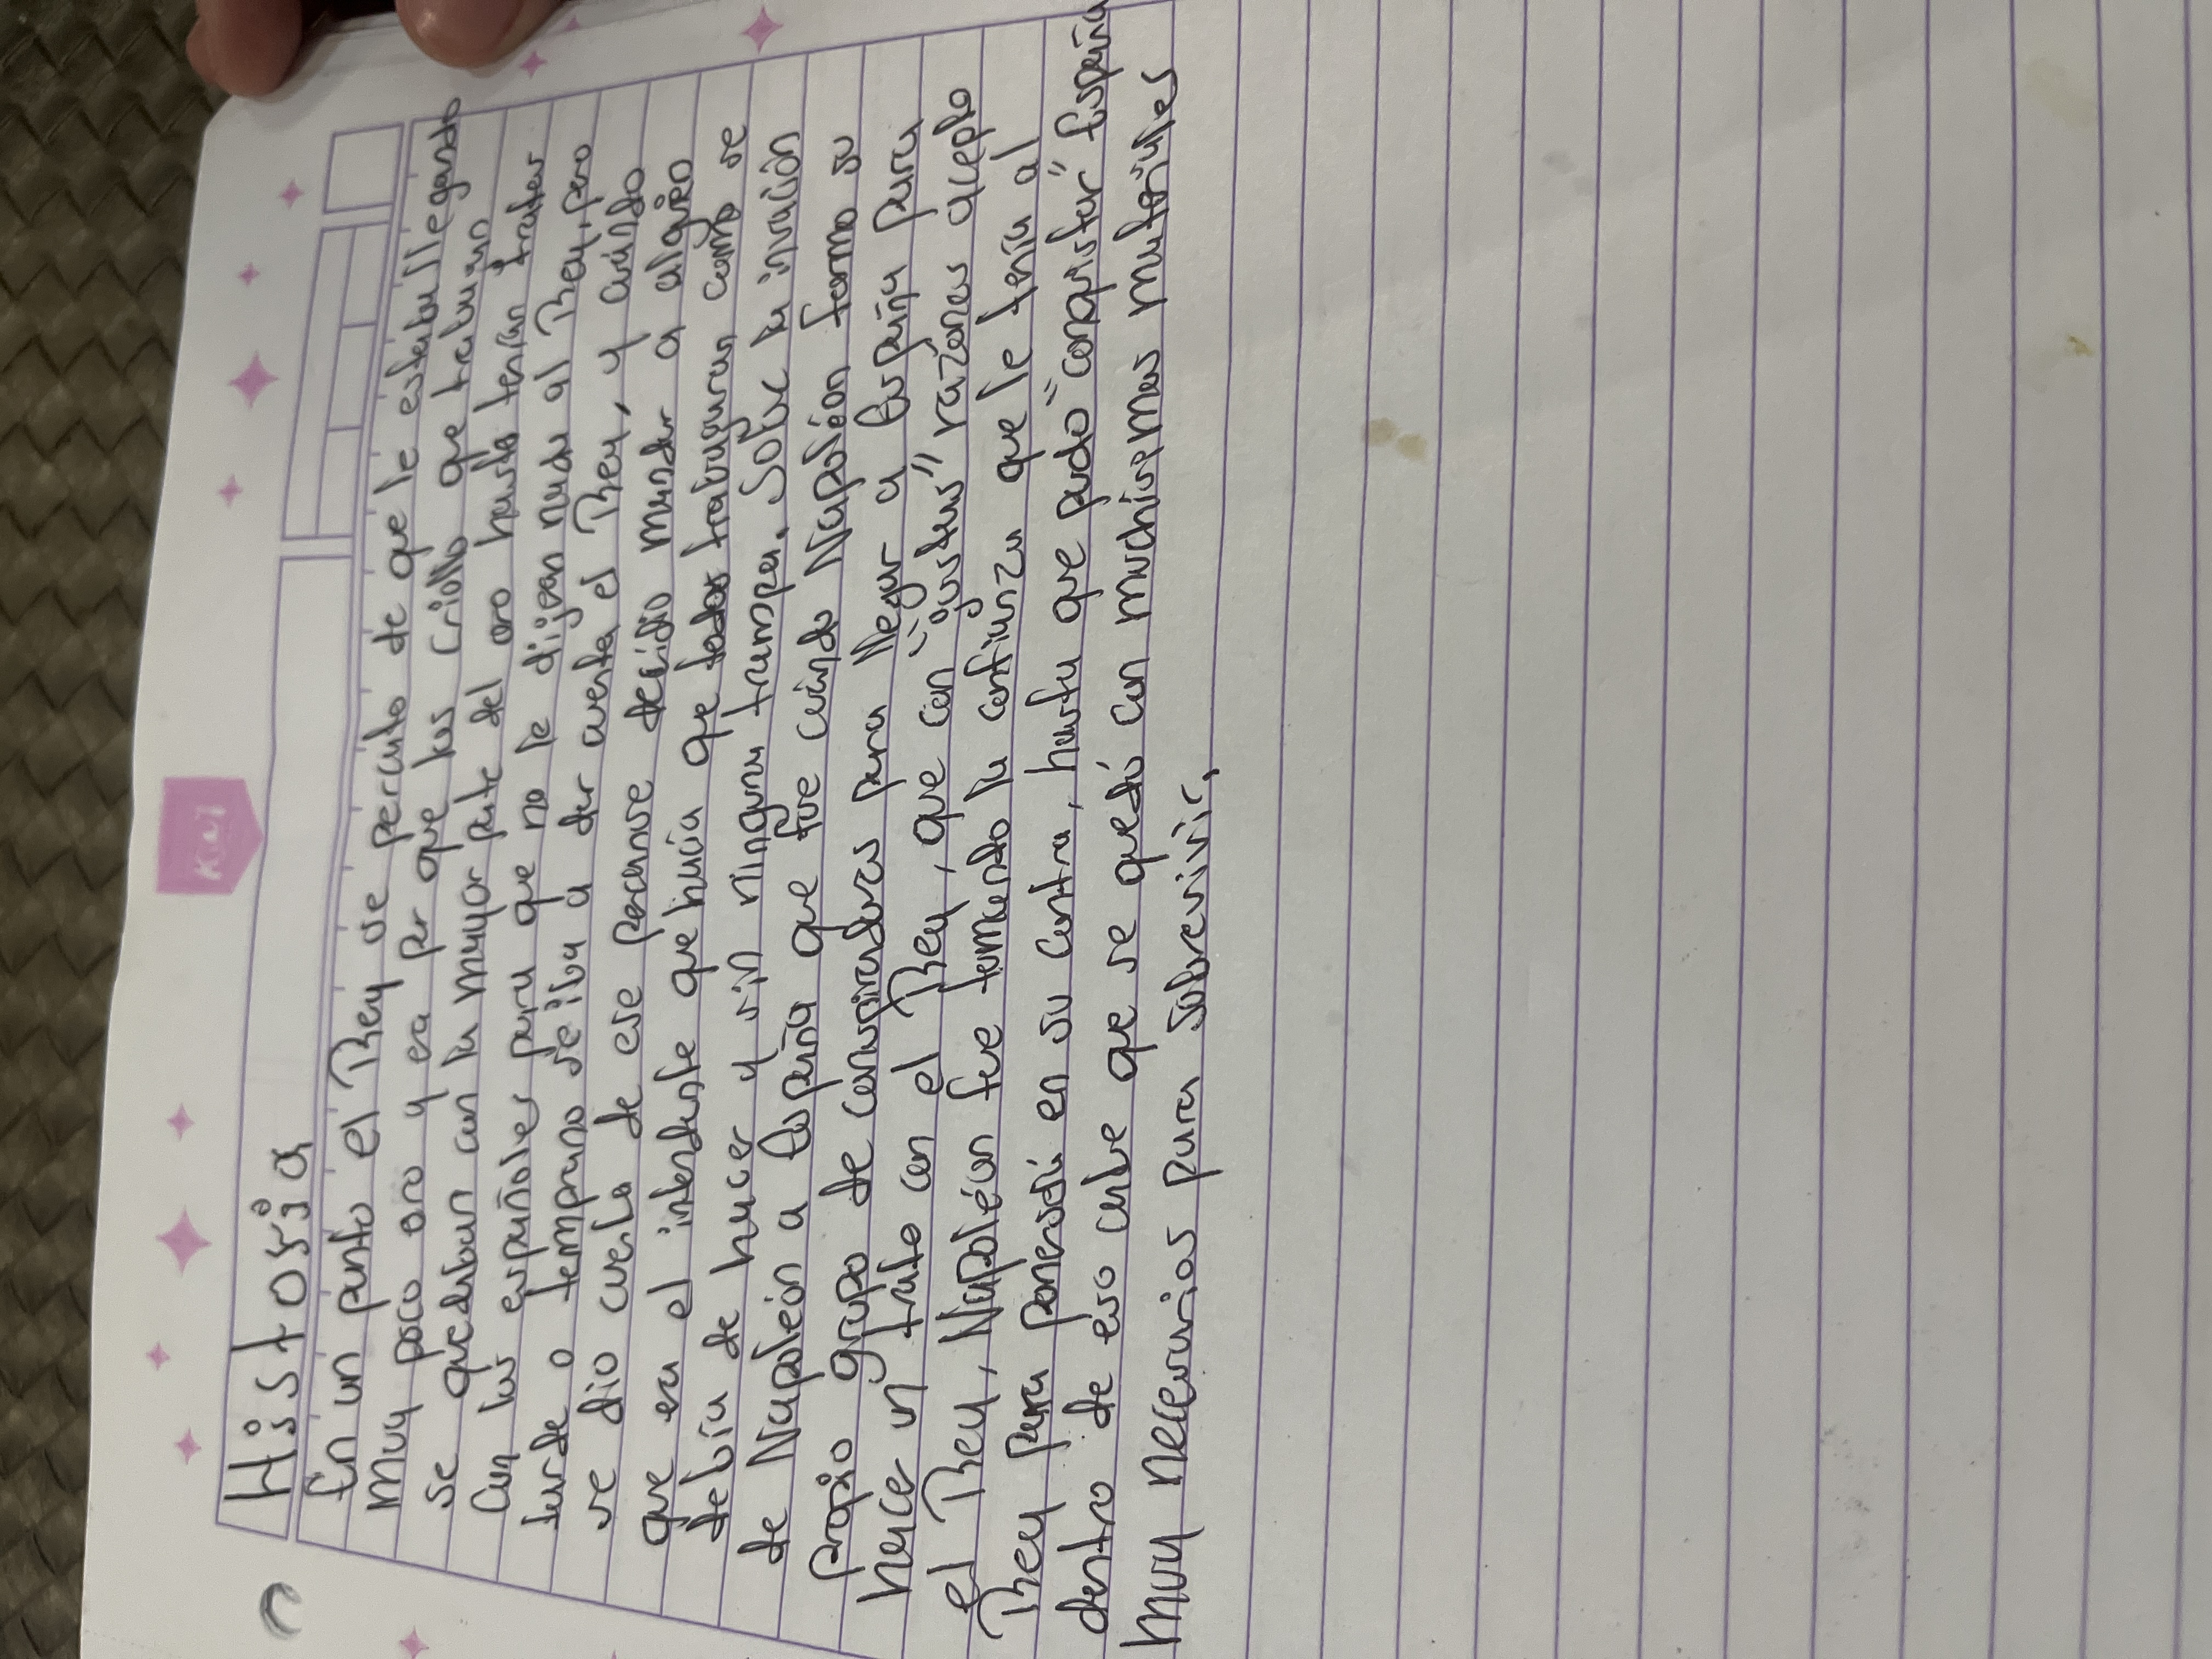 Kiut
Historia
En un punto el Rey se percato de que le estaba llegando
muy poco oro y era por que los criollo que trabajan
se quedaban con la mayor parte del oro hasta tenían tratos
Con los españoles para que no le dijean nada al Rey, pero
tarde o temprano se iba a dar cuenta el Rey, y cuándo
se dio cuenta de ese percanse decidio mandar a alguien
que era el intendente que hacía que todos trabajaran como se
debía de hacer y sin ninguna trampa. Sobre la invación
de Napoleón a España que fue cuándo Napoleón formo su
propio grupo de conspiradores para llegar a España para
hacer un trato con el Rey, que con "justas" razones acepto
el Rey, Napoleón fue tomando la confianza que le tenía al
Rey para ponersela en su contra, hasta que pudo "conquistar" España
dentro de eso cabe que se quedó con muchisemos materiales
muy necesarios para sobrevivir.